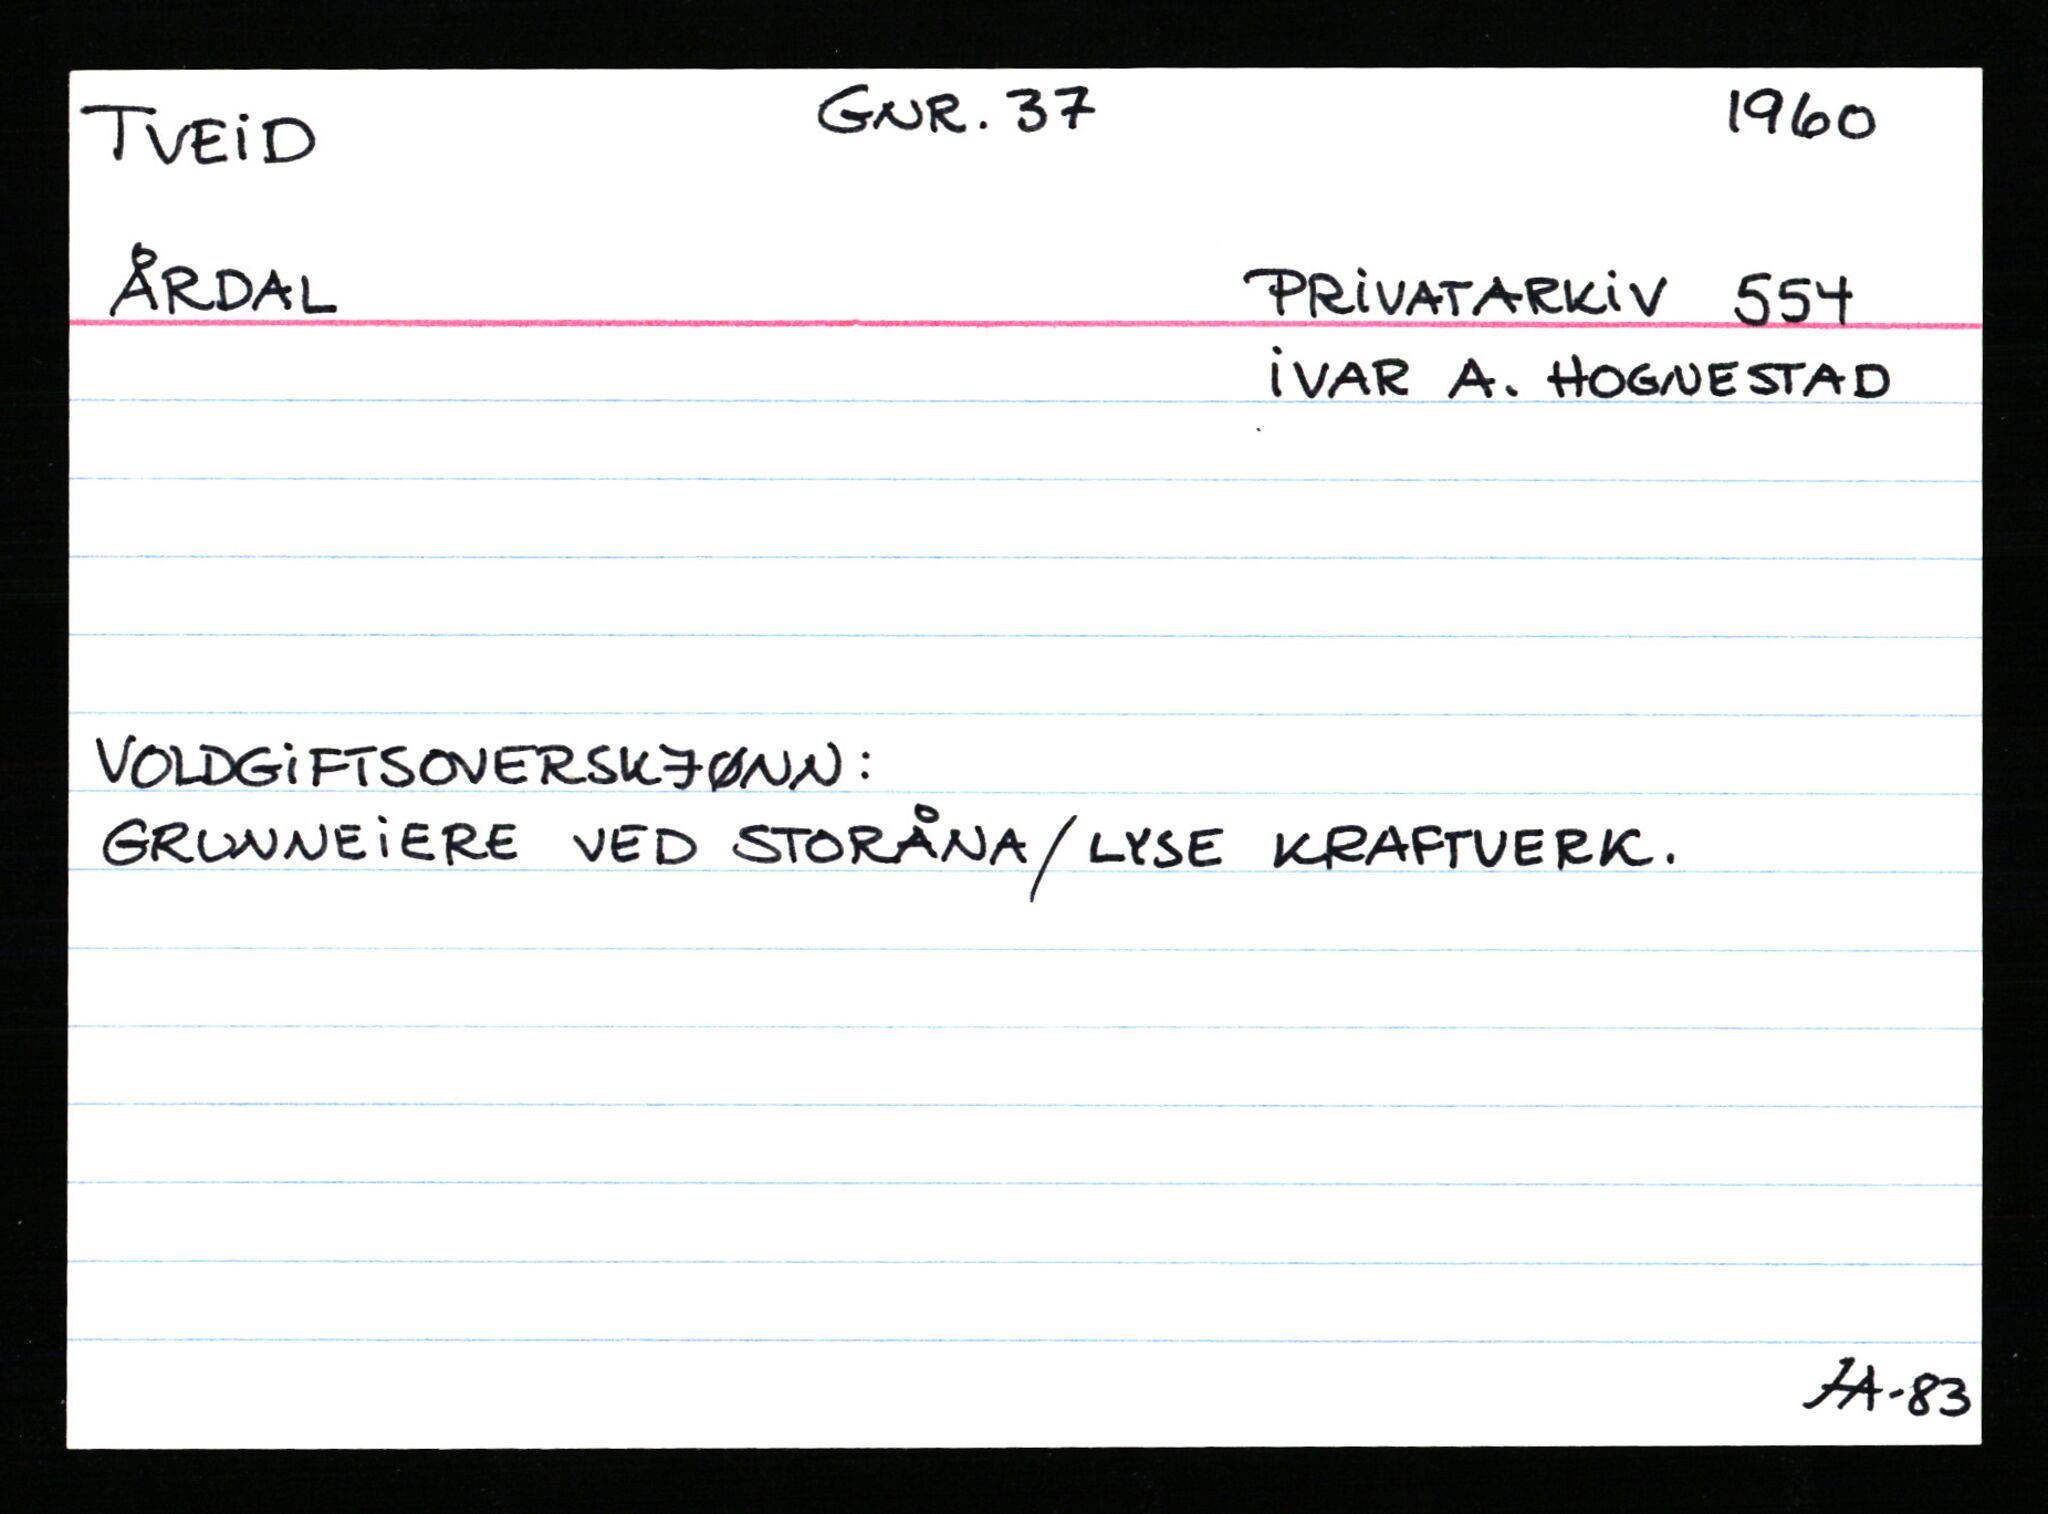 TVEID GNR. 37 1960
ÅRDAL PRIVATARKIV 554
IVAR A. HOGNESTAD
VOLDGIFTSOVERSKJØNN:
GRUNNEIERE VED STORÅNA/LYSE KRAFTVERK.
JA-83